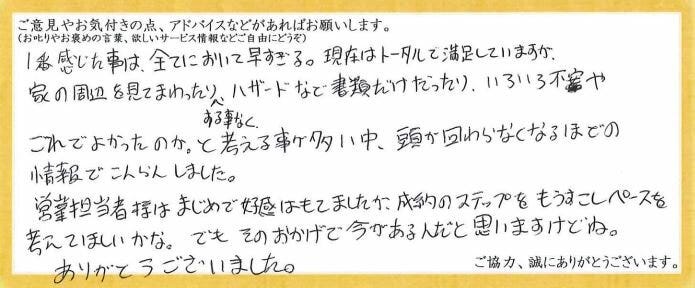 ご意見やお気付きの点、アドバイスなどがあればお願いします。
(お叱りやお褒めの言葉、欲しいサービス情報などご自由にどうぞ)
1番感じた事は、全てにおいて早すぎる。現在はトータルで満足していますが、
家の周辺を見てまわったり、ハザードなど書類だけだったり、いろいろ不審や
ある事なく、
これでよかったのか。と考える事が多い中、頭が回わらなくなるほどの
情報でこんらんしました。
営業担当者様はまじめで好感はもてましたが、成約のステップをもうすこしペースを
考えてほしいかな。でもそのおかげで今があるんだと思いますけどね。
ありがとうございました。
ご協力、誠にありがとうございます。